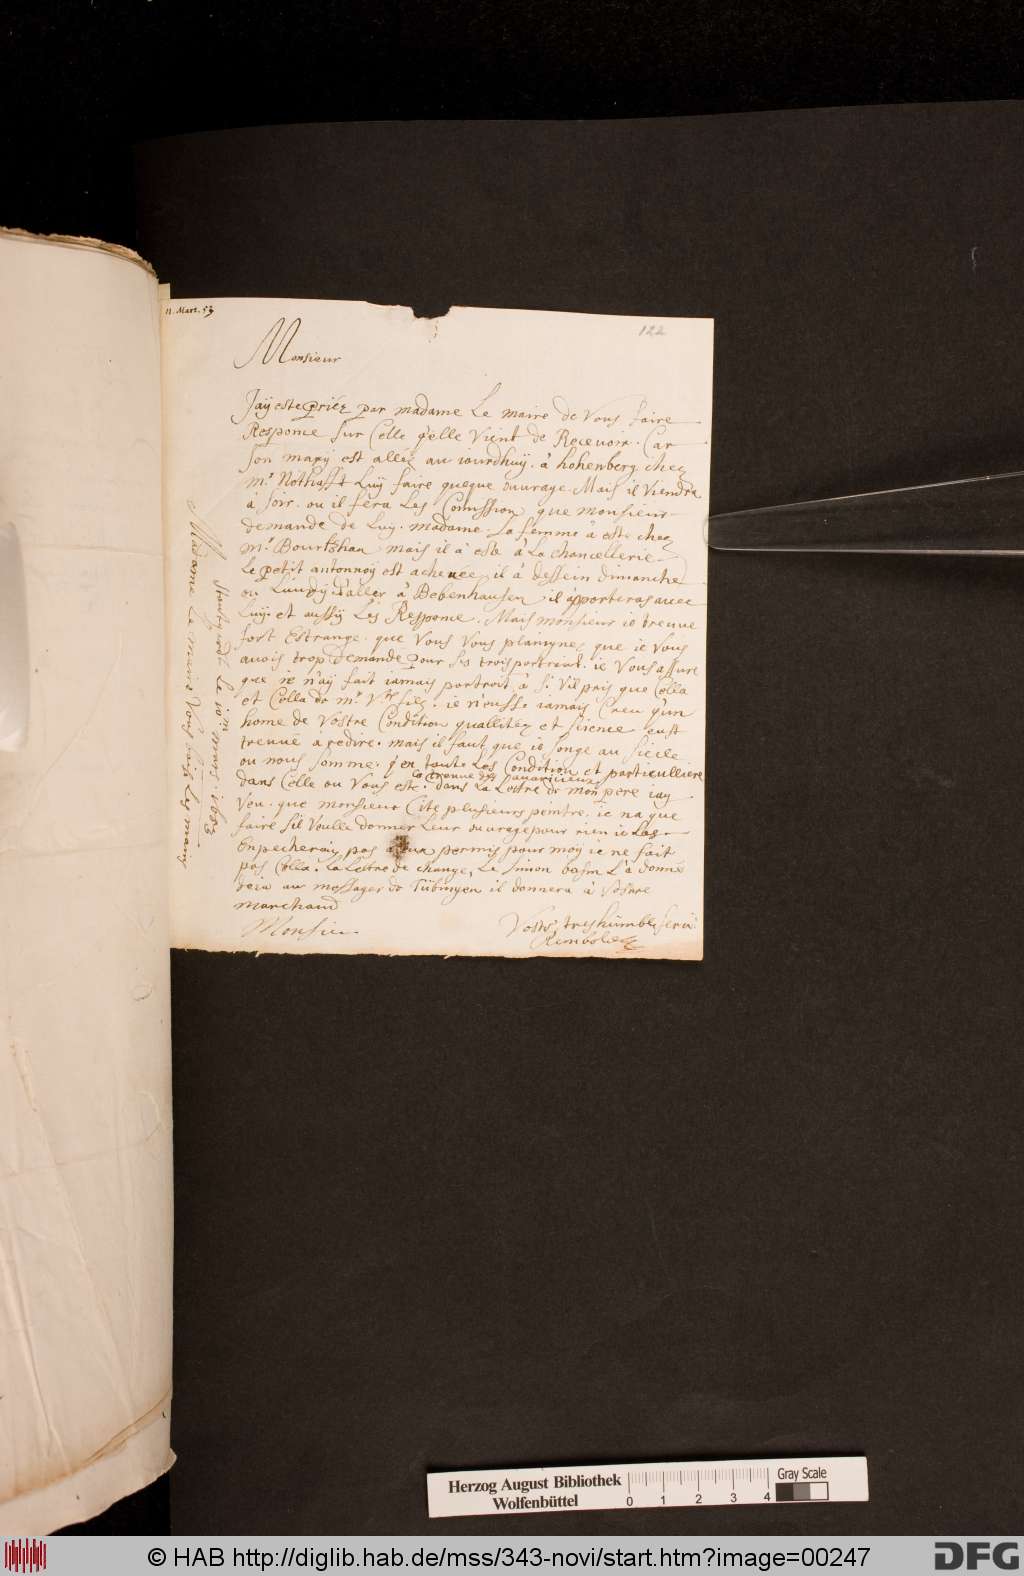 11. Mart. 53
122
Monsieur
Jaÿ este priéz par madame Le maire de Vous faire
Responce sur Celle qelle Vient de Recevoir. Car
son marÿ est alléz au iourdhuÿ. à hohenberg. chez
mr. Nothafft Luÿ faire queque ouvrage. Mais il Viendra
à soir. ou il fera Les Comission que monsieur
demande de Luÿ. madame. La femme à este chez
mr. Bourkhan mais il à este à La chancellerie
Le petit antonnoÿ est achevée, il à dessein dimanche
ou Lundÿ d'aller à Bebenhausen il àpporteras avec
Luÿ. et aussÿ Les Responce. Mais monsieur ie treuve
fort Estrange. que Vous Vous plaingnez que ie Vous
avois trop demandé pour Ses trois portrait. ie Vous assure
que ie n'aÿ fait iamais portrait à si Vil pris que Cella
et Cella de mr. filz. ie n'eusse iamais Creu q'un
home de Vostre Condition quallitéz et sience eust
treuvé à redire. mais il faut que ie songe au siècle
ou nous somme. q'en toute Les Condition et particulliere
Ce treuve des avaricieux
dans Celle ou Vous este. dans La Lettre de mon pere iaÿ
Veu. que monsieur Cite plusieurs peintre. ie na que
faire sil Veulle donner Leur ouvrage pour rien ie Les
Enpecheraiÿ pas à eux permis pour moÿ ie ne fait
pas Cella. La Lettre de change, Le Simon L'à donné
au messager de Tübingen il donnera à Vostre
marchand
Monsieur
Vostre treshumble servi
Rembold
Stoutgardt Le 10m mars. 1653
Madame Le maire Vous baise Les mains
Herzog August Bibliothek
Wolfenbüttel
0 1 2 3 4
Gray Scale
© HAB http://diglib.hab.de/mss/343-novi/start.htm?image=00247
DFG